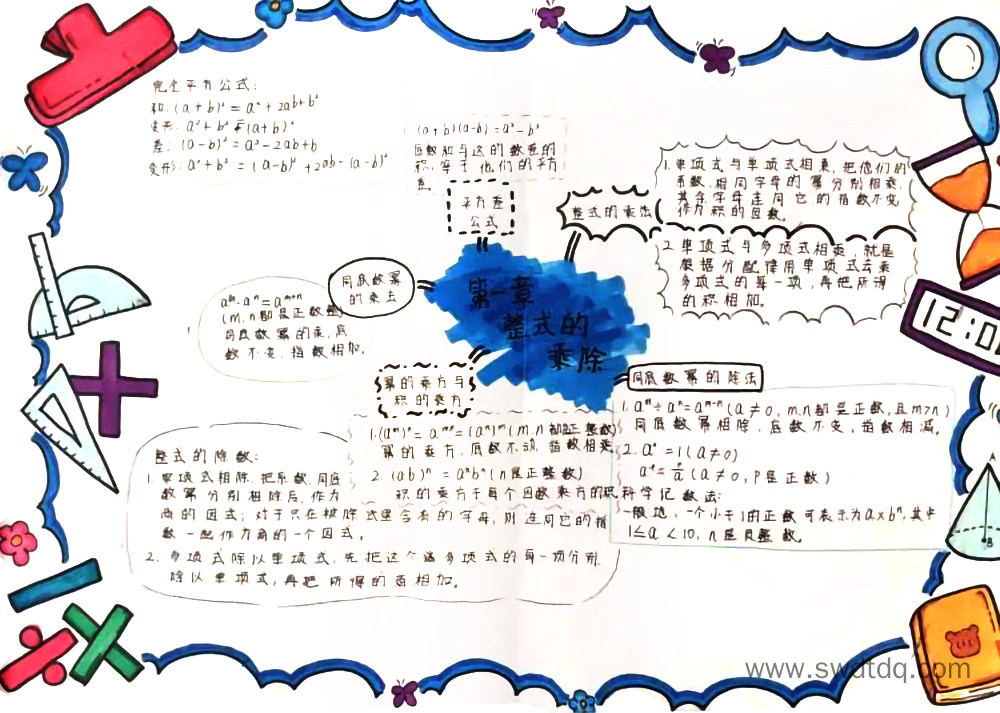 完全平方公式:
和: (a+b)² = a²+2ab+b²
变形: a²+b² = (a+b)²
差: (a-b)² = a²-2ab+b
变形: a²+b² = (a-b)² +2ab- (a-b)²
(a+b)(a-b)=a²-b²
的数差的
积,等于他们的平方
差。
平方差
公式
整式的乘法
1.单项式与单项式相乘,把他们的
系数、相同字母的幂分别相乘,
其余字母连同它的指数不变
作为积的因数。
2.单项式与多项式相乘,就是
根据分配律用单项式去乘
多项式的每一项,再把所得
的积相加。
第一章
整式的
乘除
同底数幂
的乘法
aᵐ·aⁿ=aᵐ⁺ⁿ
(m,n都是正数整)
同底数幂的乘,底
数不变,指数相加。
幂的乘方与
积的乘方
1.(aᵐ)ⁿ=aᵐⁿ=(aⁿ)ᵐ(m,n都是正整数)
幂的乘方,底数不动,指数相乘
2.(ab)ⁿ=aⁿbⁿ(n是正整数)
积的乘方于每个因数乘方的积
同底数幂的除法
1.aᵐ÷aⁿ=aᵐ⁻ⁿ(a≠0,m.n都是正数,且m>n)
同底数幂相除,底数不变,指数相减。
2.a°=1(a≠0)
(a≠0,P是正数)
科学记数法:
一般地,一个小于1的正数可表示为a×bⁿ,其中
1≤a<10,n是负整数。
整式的除数:
1.单项式相除,把系数、同底
数幂分别相除后,作为
商的因式;对于只在被除式里含有的字母,则连同它的指
数一起作为商的一个因式。
2.多项式除以单项式,先把这个多项式的每一项分别
除以单项式,再把所得的商相加。
12:0
A
B
www.swdtdq.com